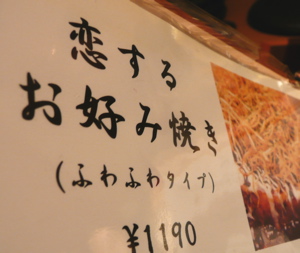 恋する
お好み焼き
(ふわふわタイプ)
¥1190